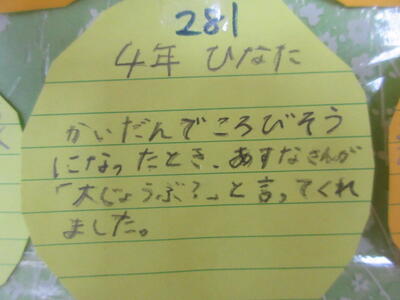 281
4年 ひなた
かいだんでころびそう
になったとき、あすなさんが
「大じょうぶ?」と言ってくれ
ました。